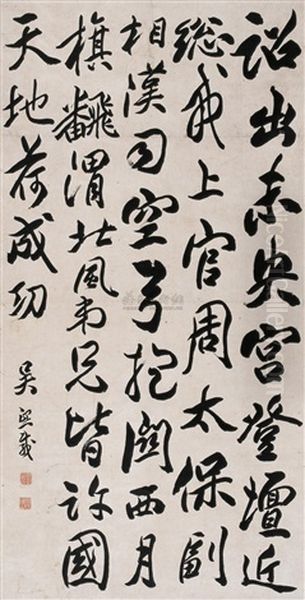 詔出未央宮登壇近
総戎上官周太保副
相漢司空弓抱關西月
旗飜渭北風弟兄皆許國
天地荷成功
吳熙載